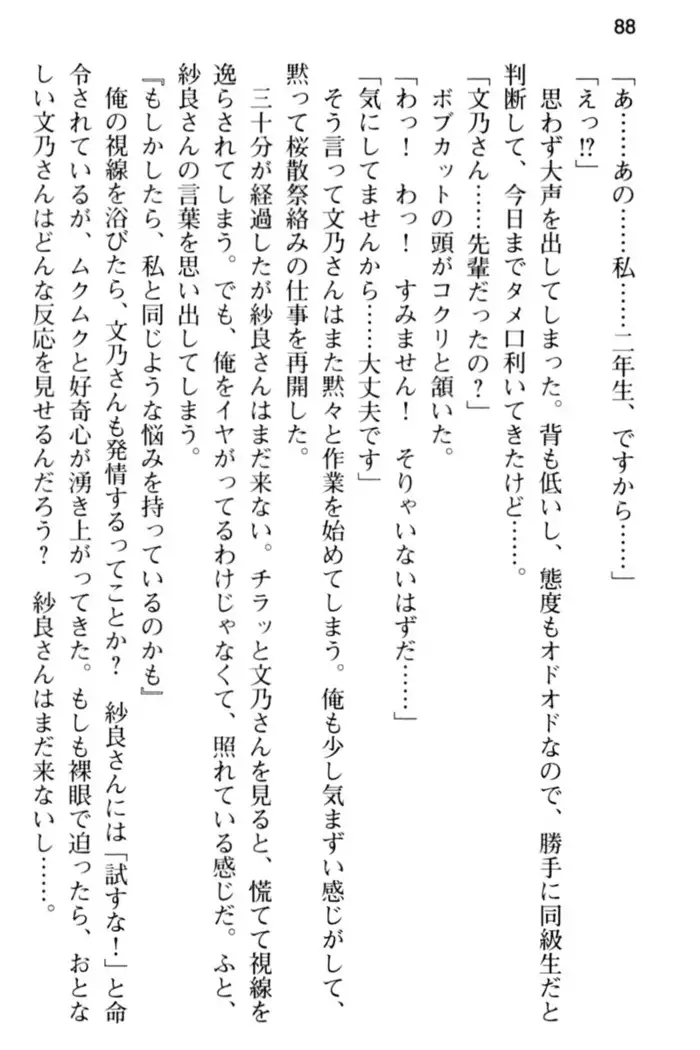 88
「あ……あの……私……二年生、ですから……」
「えっ!?」
思わず大声を出してしまった。背も低いし、態度もオドオドなので、勝手に同級生だと
判断して、今日までタメ口利いてきたけど……。
「文乃さん……先輩だったの?」
ボブカットの頭がコクリと頷いた。
「わっ! わっ! すみません! そりゃいないはずだ……」
「気にしてませんから……大丈夫です」
そう言って文乃さんはまた黙々と作業を始めてしまう。俺も少し気まずい感じがして、
黙って桜散祭絡みの仕事を再開した。
三十分が経過したが紗良さんはまだ来ない。チラッと文乃さんを見ると、慌てて視線を
逸らされてしまう。でも、俺をイヤがってるわけじゃなくて、照れている感じだ。ふと、
紗良さんの言葉を思い出してしまう。
『もしかしたら、私と同じような悩みを持っているのかも』
俺の視線を浴びたら、文乃さんも発情するってことか? 紗良さんには「試すな!」と命
令されているが、ムクムクと好奇心が湧き上がってきた。もしも裸眼で迫ったら、おとな
しい文乃さんはどんな反応を見せるんだろう? 紗良さんはまだ来ないし……。